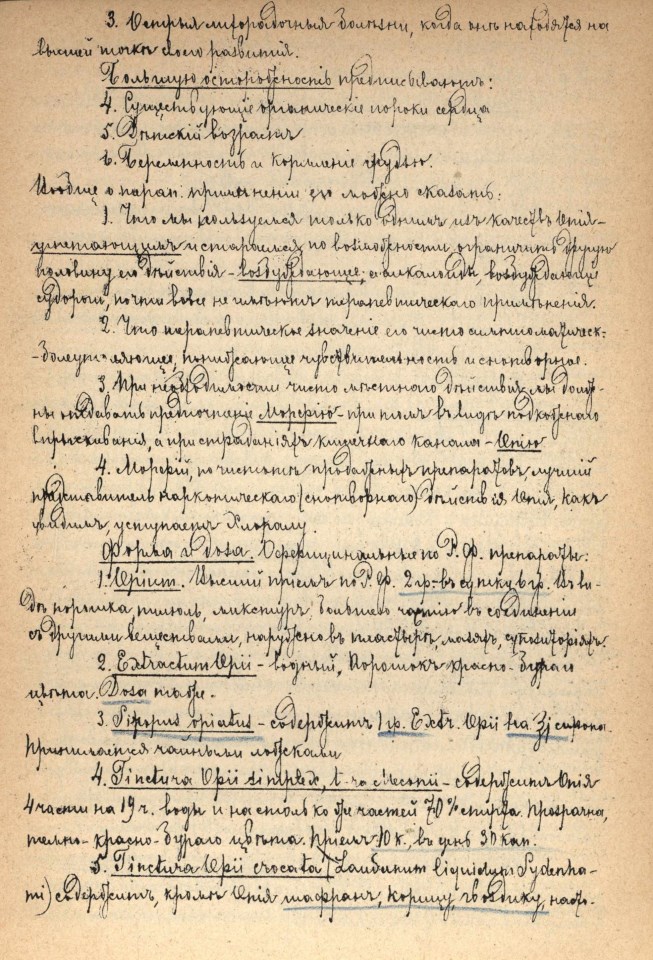 3. Острыя лихорадочныя болѣзни, когда онѣ находятся на
высшей точкѣ своего развития.
Большую осторожность предписываютъ:
4. Существующіе органическіе пороки сердца
5. Дѣтскій возрастъ
6. Беременность и кормленіе грудью.
Вообще о терап. примѣненіи его можно сказать:
1. Что мы пользуемся только однимъ изъ качествъ Опія -
угнетающимъ и стараемся по возможности ограничить другую
половину его дѣйствія - возбуждающее; алкалоиды, возбуждающіе
судороги, почти вовсе не имѣютъ терапевтическаго примѣненія.
2. Что терапевтическое значеніе его чисто симптоматическ-
- болеутоляющее, понижающее чувствительность и снотворное.
3. При необходимости чисто мѣстнаго дѣйствія мы долж-
ны отдавать предпочтеніе Морфію - при томъ въ видѣ подкожнаго
впрыскиванія, а при страданіяхъ кишечнаго канала - Опію
4. Морфій, по чистотѣ продажныхъ препаратовъ, лучшій
представитель наркотическаго (снотворнаго) дѣйствія Опія, какъ
увидимъ, уступаетъ Хлоралу.
Форма и dosa. Оффицинальные по Р. Ф. препараты:
1. Opium. Высшій пріемъ по Р. Ф. 2 гр. въ сутки 6 гр. Въ ви-
дѣ порошка пилюль, микстуръ большею частію въ соединеніи
съ другими веществами, наружно въ пластырѣ, мазяхъ, супозиторіяхъ.
2. Extractum Opii - водный, Порошокъ красно-бураго
цвѣта. Dosa таже.
3. Siropus opiatus - содержитъ 1 гр. Extr. Opii на ℥j сиропа.
Принимается чайными ложками
4. Tinctura Opii simplex, t-ra Meconii - содержитъ Опія
4 части на 19 ч. воды и настолько же частей 70% спирта. Прозрачна,
темно-красно-бураго цвѣта. Пріемъ 10 к., въ день 30 кап.
5. Tinctura Opii crocata (Laudanum liquidum Sydenha-
mi) содержитъ, кромѣ Опія шафранъ, корицу, гвоздику, насто-